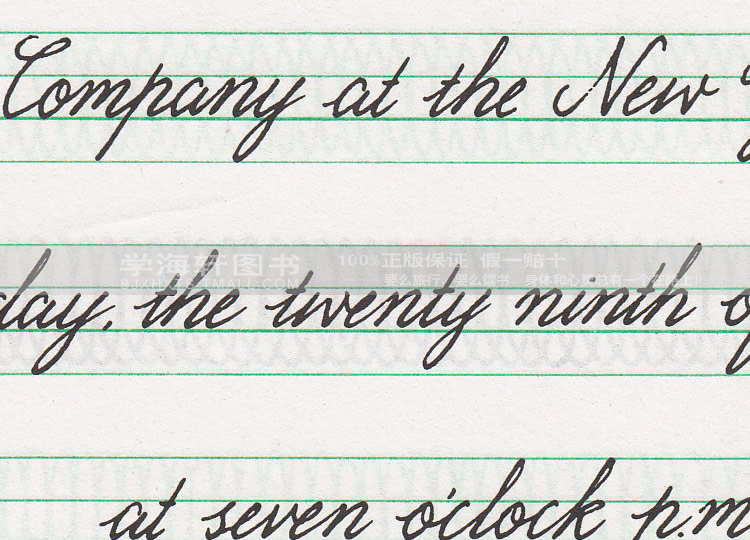 Company at the New
day, the twenty ninth of
学海轩图书 100%正版保证 假一赔十
BJXHXTS.TMALL.COM 要么旅行，要么读书，身体和心灵总有一个在路上！
at seven o'clock p.m